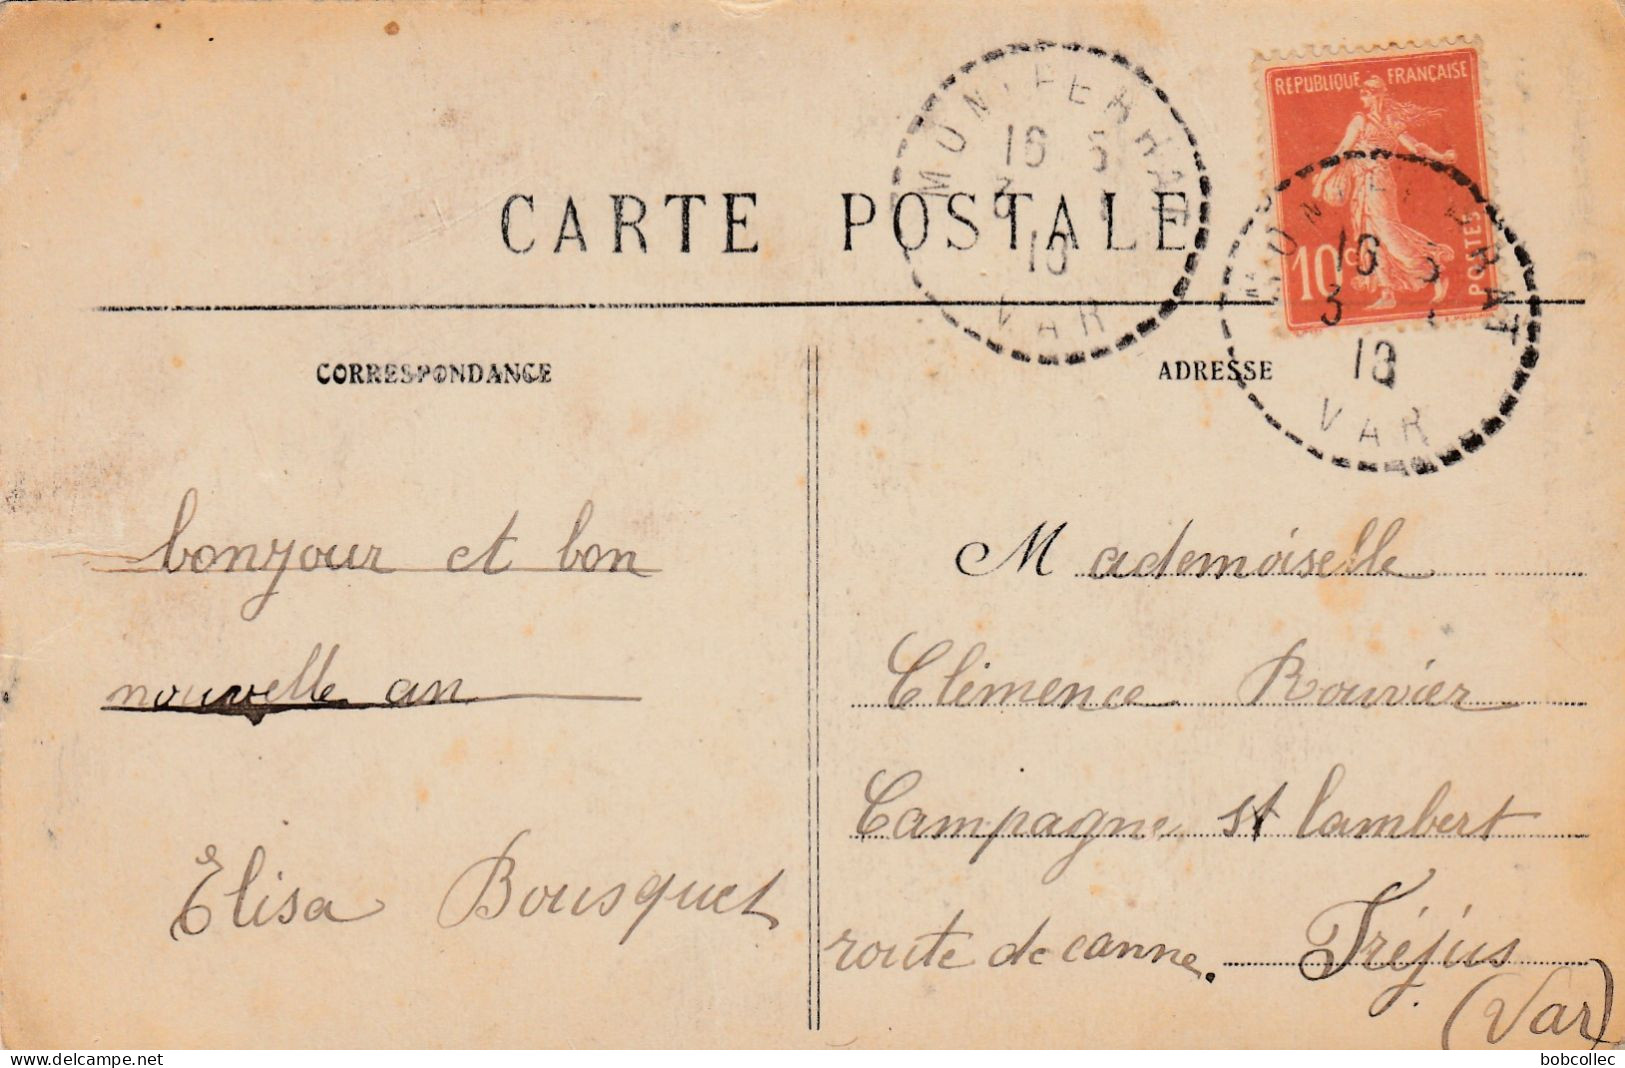 RÉPUBLIQUE FRANÇAISE
10 c.
POSTES
MONTFERRAT
16
3
10
VAR
MONTFERRAT
16
3
10
VAR
CARTE POSTALE
CORRESPONDANCE
ADRESSE
bonjour et bon
nouvelle an
Elisa Bousquet
Mademoiselle
Clémence Rouvier
Campagne st lambert
route de canne. Fréjus
(Var)
bobcollec
delcampe.net